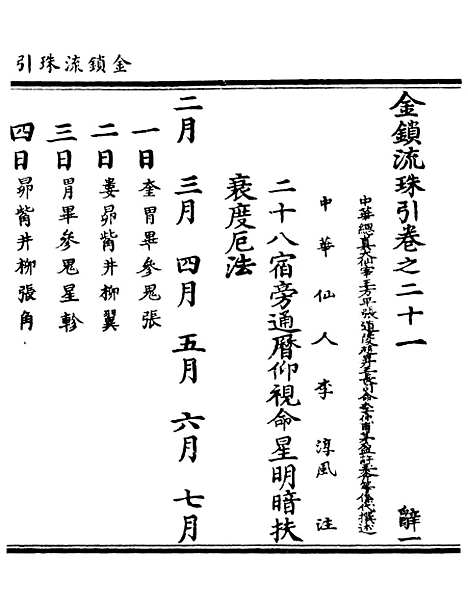 金鎖流珠引
金鎖流珠引卷之二十一 辭一
中華仙人李淳風注
二十八宿旁通曆仰視命星明暗扶
衰度厄法
二月 三月 四月 五月 六月 七月
一日奎胃畢參鬼張
二日婁昴觜井柳翼
三日胃畢參鬼星軫
四日昴觜井柳張角